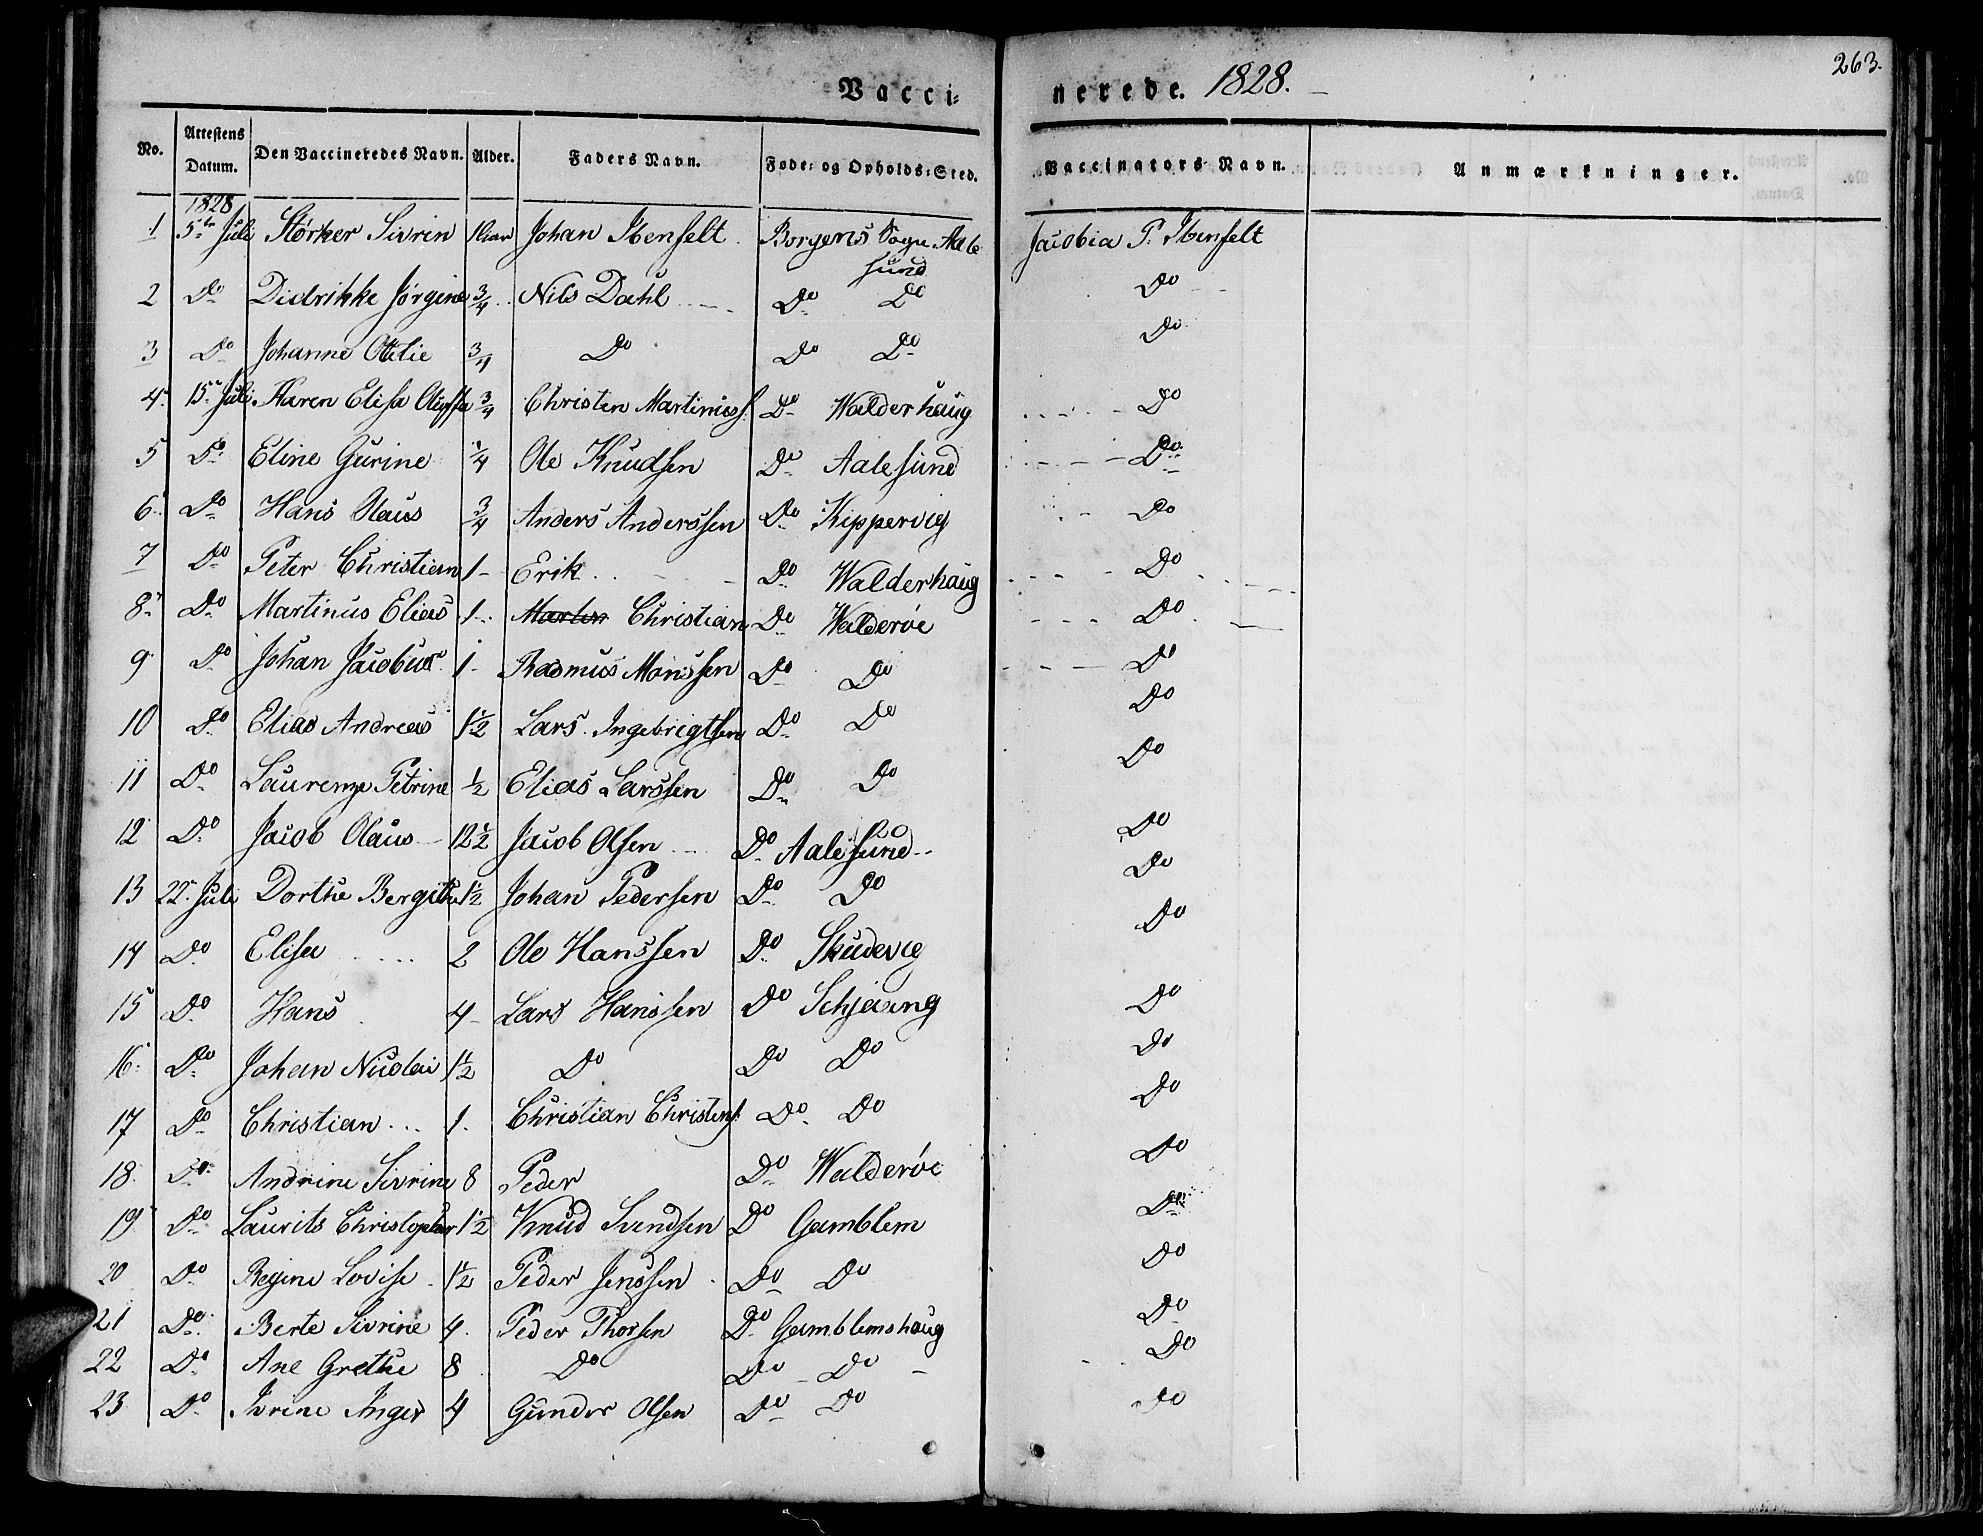 263.
Vacci- nerede. 1828.
No. Attestens Datum. Den Vaccineredes Navn. Alder. Faders Navn. Føde- og Opholds-Sted. Vaccinators Navn. Anmærkninger.
1828
1 5te Juli Størker Sivrin 1 Aar Johan Ibenfelt Borgens Sogn Aale Jacobia P. Ibenfelt
sund
2 Do Didrikke Jørgine 3/4 Nils Dahl Do Do Do
3 Do Johanne Otelie 3/4 Do Do Do Do
4 15 Juli Karen Elisa 3/4 Christen Martinuss. Do Walderhaug Do
5 Do Eline Gurine 1/4 Ole Knudsen Do Aalesund Do
6 Do Hans Olaus 3/4 Anders Anderssen Do Kippervig Do
7 Do Peter Christian 1 Erik Do Walderhaug Do
8 Do Martinus Elias 1 Christian Do Walderøe Do
9 Do Johan Jacobus 1 Rasmus Monssen Do Do Do
10 Do Elias Andreas 1 1/2 Lars Ingebrigtsen Do Do Do
11 Do Laurenze Petrine 1/2 Elias Larssen Do Do Do
12 Do Jacob Olaus 12 1/2 Jacob Olsen Do Aalesund Do
13 22 Juli Dorthe Bergitte 1 1/2 Johan Pedersen Do Do Do
14 Do Elisa 2 Ole Hanssen Do Skudevig Do
15 Do Hans 4 Lars Hanssen Do Schjæong Do
16 Do Johan Nicolai 1 1/2 Do Do Do Do
17 Do Christian 1 Christian Christens. Do Do Do
18 Do Andrine Sivrine 8 Peder Do Walderøe Do
19 Do Laurits Christopher 1 1/2 Knud Svendsen Do Gamblem Do
20 Do Regine Lovise 1 1/2 Peder Jenssen Do Do Do
21 Do Berte Sivrine 4 Peder Thorsen Do Gamblemshaug Do
22 Do Ane Grethe 8 Do Do Do Do
23 Do Ivrine Inger 4 Gunder Olsen Do Do Do